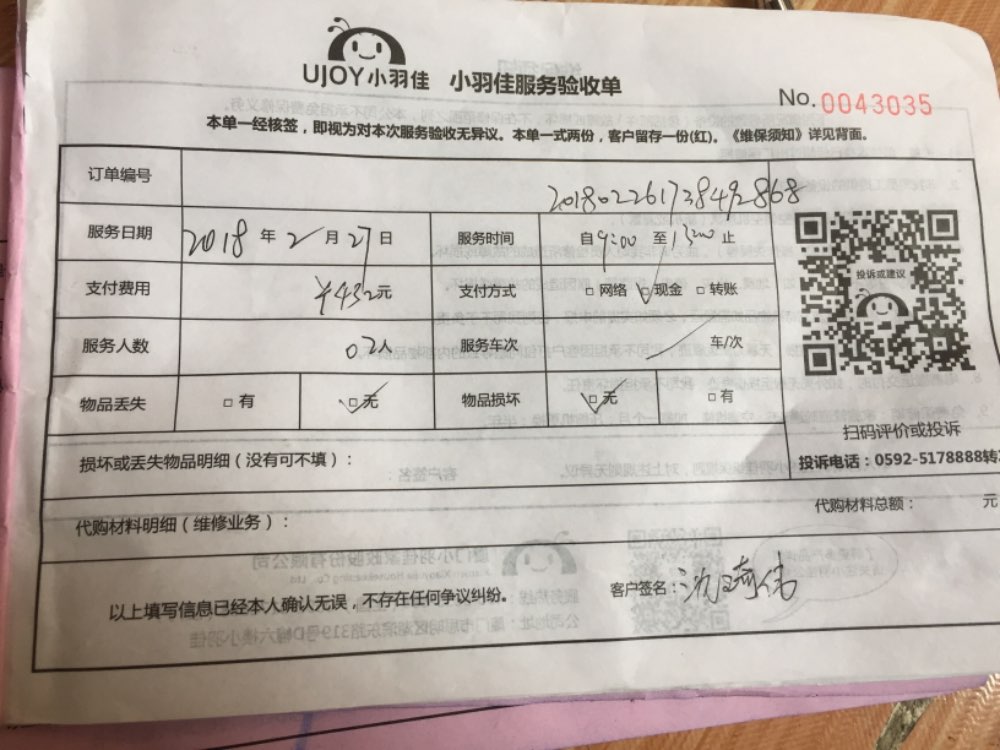 UJOY小羽佳 小羽佳服务验收单
No. 0043035
本单一经核签，即视为对本次服务验收无异议。本单一式两份，客户留存一份(红)。《维保须知》详见背面。
订单编号 201802261738492868
服务日期 2018 年 2 月 27 日 服务时间 自9:00 至 1200 止
支付费用 ￥432元 支付方式 □ 网络 □ 现金 □ 转账
投诉或建议
服务人数 02人 服务车次 车/次
物品丢失 □ 有 □ 无 物品损坏 □ 无 □ 有
扫码评价或投诉
损坏或丢失物品明细（没有可不填）：
投诉电话：0592-5178888转
代购材料明细（维修业务）：
代购材料总额： 元
以上填写信息已经本人确认无误，不存在任何争议纠纷。
客户签名：